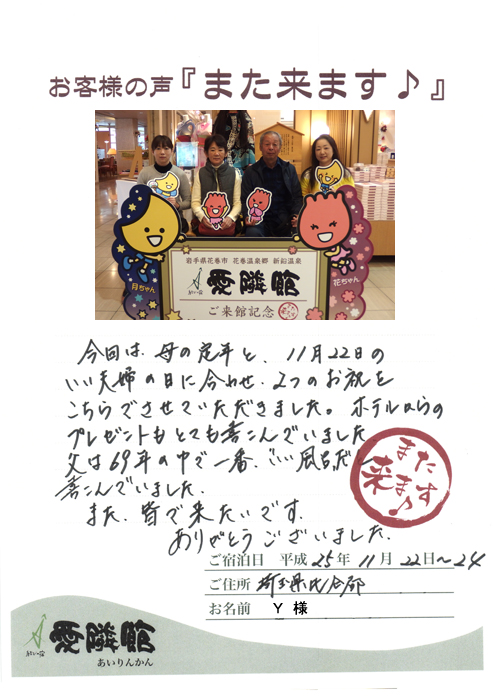 お客様の声『また来ます♪』
岩手県花巻市 花巻温泉郷 新鉛温泉
愛隣館
ご来館記念
月ちゃん
花ちゃん
今回は、母の定年と、11月22日の
いい夫婦の日に合わせ、2つのお祝を
こちらでさせていただきました。ホテルからの
プレゼントもとても喜こんでいました。
父は69年の中で一番、いい風呂だと
喜こんでいました。
また、皆で来たいです。
ありがとうございました。
また
来ます♪
ご宿泊日 平成25年11月22日〜24
ご住所 埼玉県比企郡
お名前 Y 様
愛隣館
あいりんかん